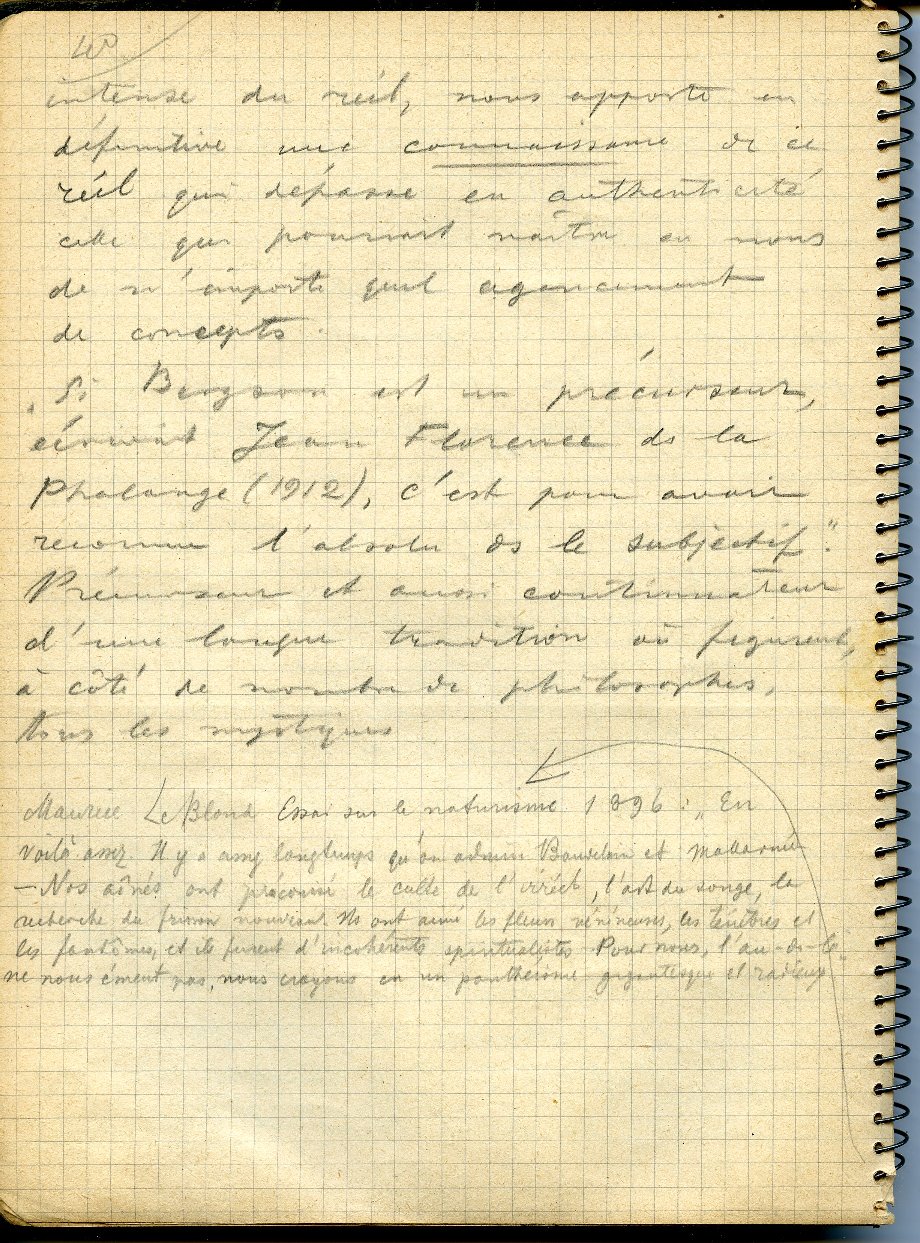 40
intense du réel, nous apporte en
définitive une connaissance de ce
réel qui dépasse en authenticité
celle qui pourrait naître en nous
de n'importe quel agencement
de concepts.
"Si Bergson est un précurseur,
écrivait Jean Florence ds la
Phalange (1912), c'est pour avoir
reconnu l'absolu ds le subjectif".
Précurseur et aussi continuateur
d'une longue tradition où figurent,
à côté de nombre de philosophes,
tous les mystiques
Maurice Le Blond Essai sur le naturisme 1896 : "En
voilà assez. Il y a assez longtemps qu'on admire Baudelaire et Mallarmé
— Nos aînés ont préconisé le culte de l'irréel, l'art du songe, la
recherche du frisson nouveau. Ils ont aimé les fleurs vénéneuses, les ténèbres et
les fantômes, et ils furent d'incohérents spiritualistes. Pour nous, l'au-delà
ne nous émeut pas, nous croyons en un panthéisme gigantesque et radieux"